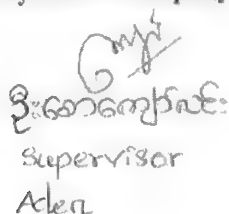 ဦးဆောကျော်လင်း
Supervisor
Aden